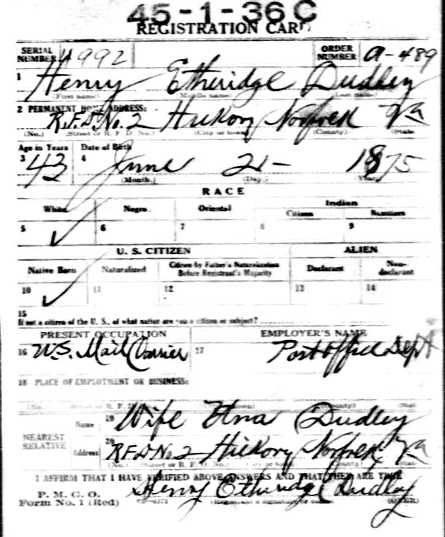 45-1-36 C
REGISTRATION CARD
SERIAL NUMBER 4992 ORDER NUMBER A-489
1 Henry Etheridge Dudley
(First name) (Middle name) (Last name)
2 PERMANENT HOME ADDRESS:
R.F.D. No. 2 Hickory Norfolk Va
(No.) (Street or R. F. D. No.) (City or town) (County) (State)
Age in Years Date of Birth
3 43 4 June 21- 1875
(Month.) (Day.) Year.
RACE
White Negro Oriental Indian
Citizen Noncitizen
5 ✓ 6 7 8 9
U. S. CITIZEN ALIEN
Native Born Naturalized Citizen by Father's Naturalization Before Registrant's Majority Declarant Non-declarant
10 ✓ 11 12 13 14
15
If not a citizen of the U. S., of what nation are you a citizen or subject?
PRESENT OCCUPATION EMPLOYER'S NAME
16 U.S. Mail Carrier 17 Post office Dept
18 PLACE OF EMPLOYMENT OR BUSINESS:
(No.) (County) (State)
NEAREST RELATIVE
Name 19 Wife Etna Dudley
Address 20 R.F.D. No 2 Hickory Norfolk Va
(No.) (Street or R. F. D. No.) (City or town) (County) (State)
I AFFIRM THAT I HAVE VERIFIED ABOVE ANSWERS AND THAT THEY ARE TRUE
P. M. G. O.
Form No. 1 (Red) Henry Etheridge Dudley